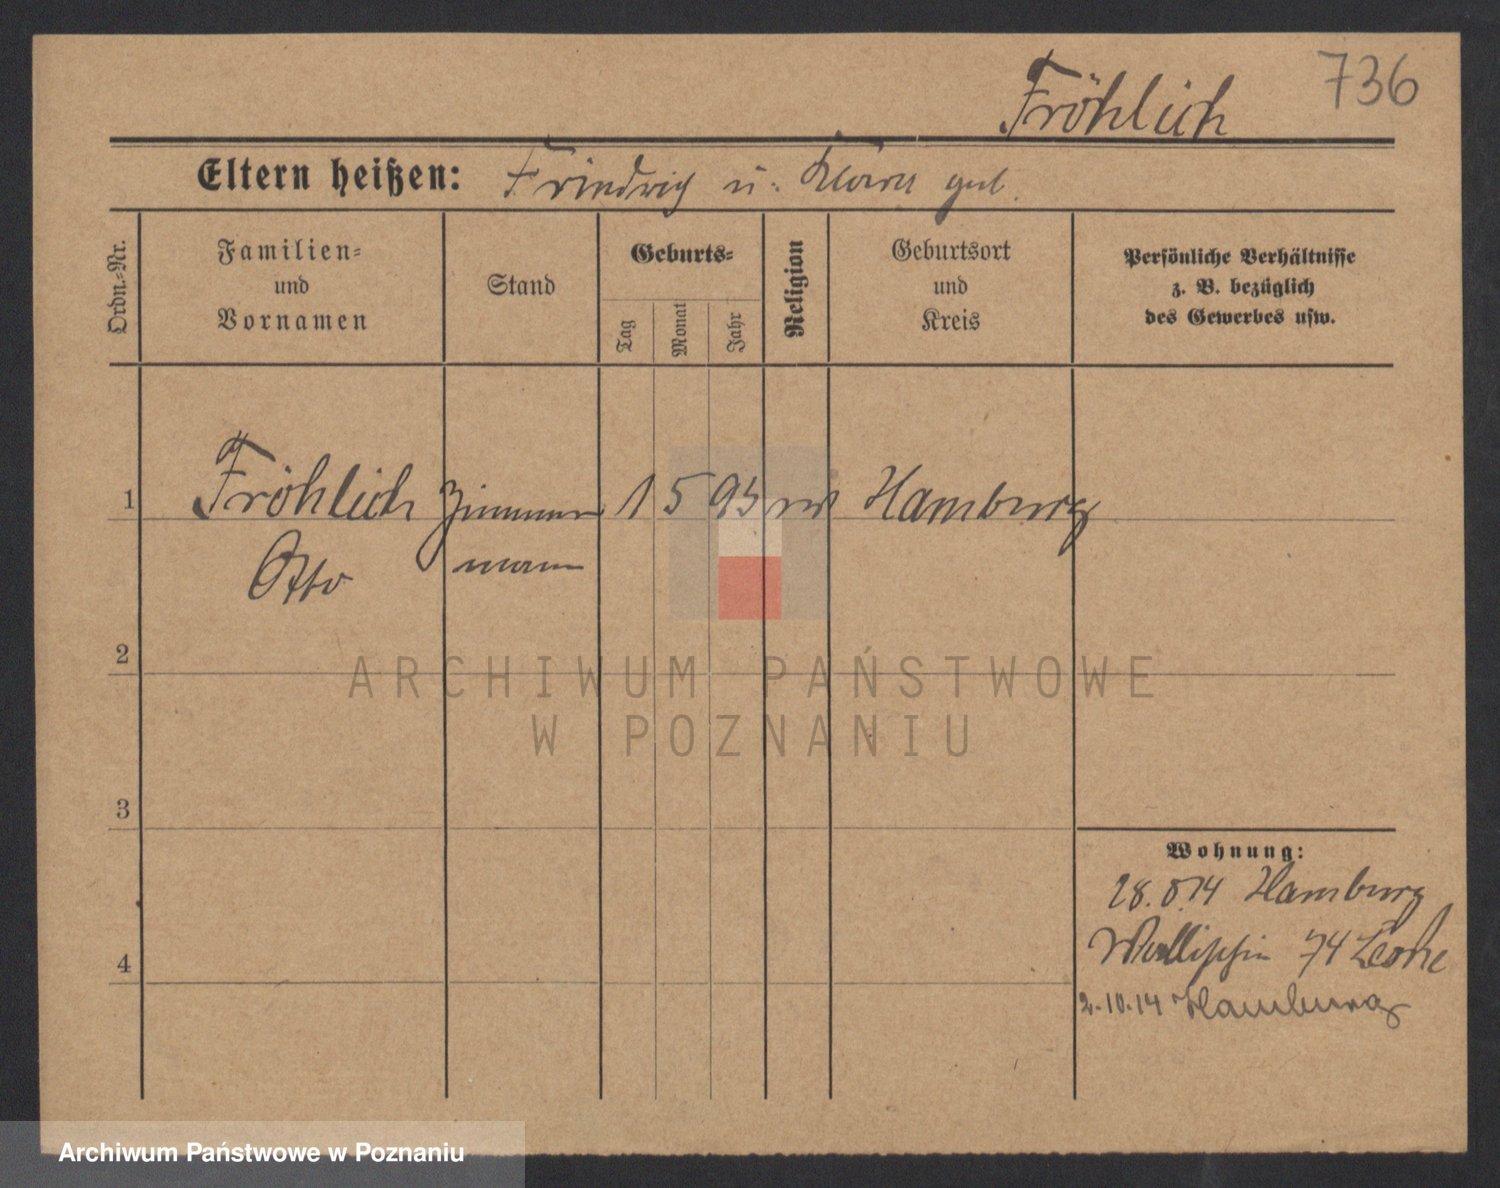 736
Fröhlich
Eltern heißen: Friedrich u.
Ordn.-Nr.
Familien-
und
Vornamen
Stand
Geburts-
Tag
Monat
Jahr
Religion
Geburtsort
und
Kreis
Persönliche Verhältnisse
z. B. bezüglich
des Gewerbes usw.
1 Fröhlich Zimmer 1 5 93 Hamburg
Otto mann
2
ARCHIWUM PAŃSTWOWE
W POZNANIU
3
Wohnung:
28.8.14 Hamburg
74
4
2.10.14 Hamburg
Archiwum Państwowe w Poznaniu